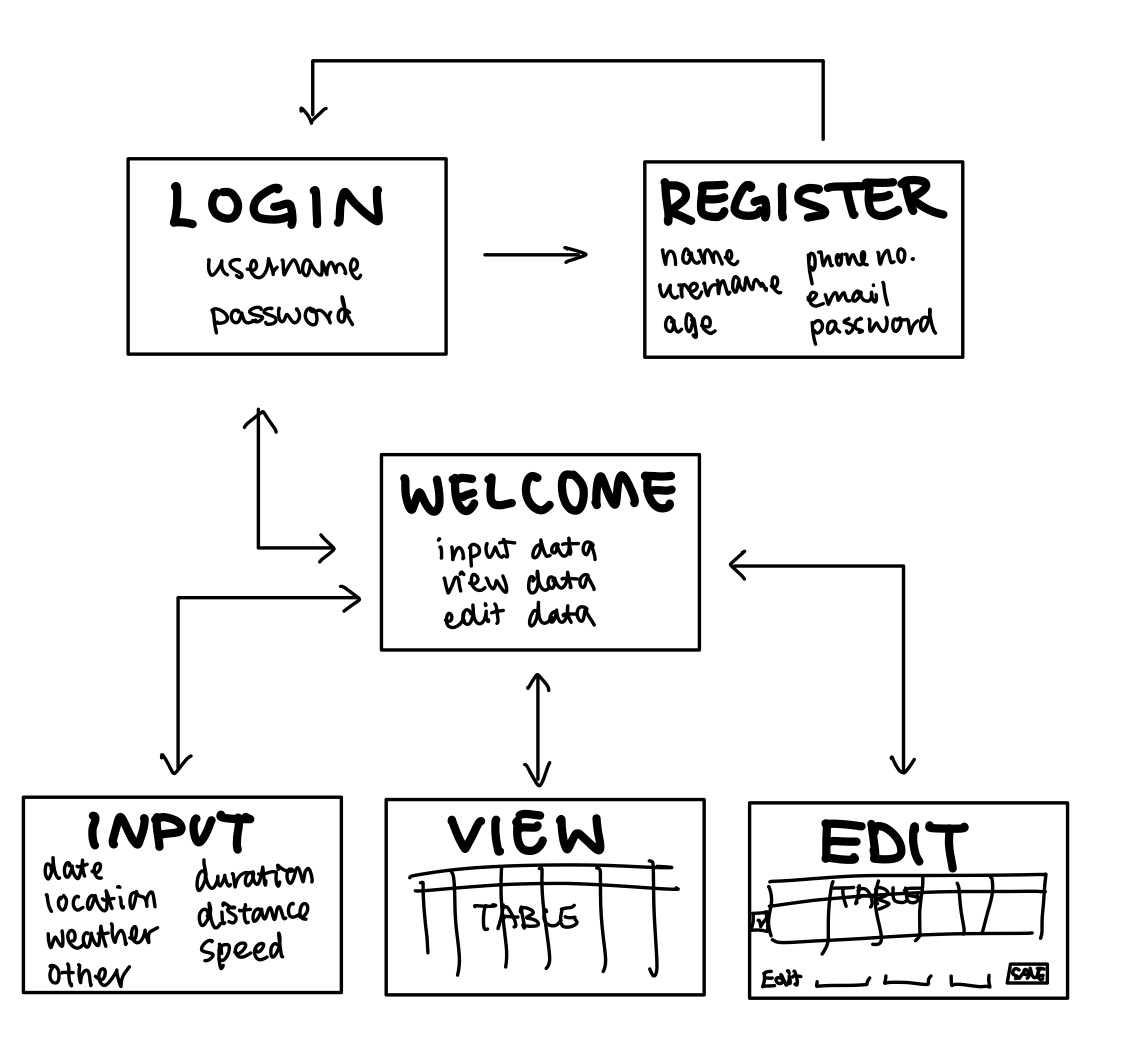 LOGIN
username
password
REGISTER
name
username
age
phone no.
email
password
WELCOME
input data
view data
edit data
INPUT
date
location
weather
other
duration
distance
speed
VIEW
TABLE
EDIT
TABLE
Edit
SAVE